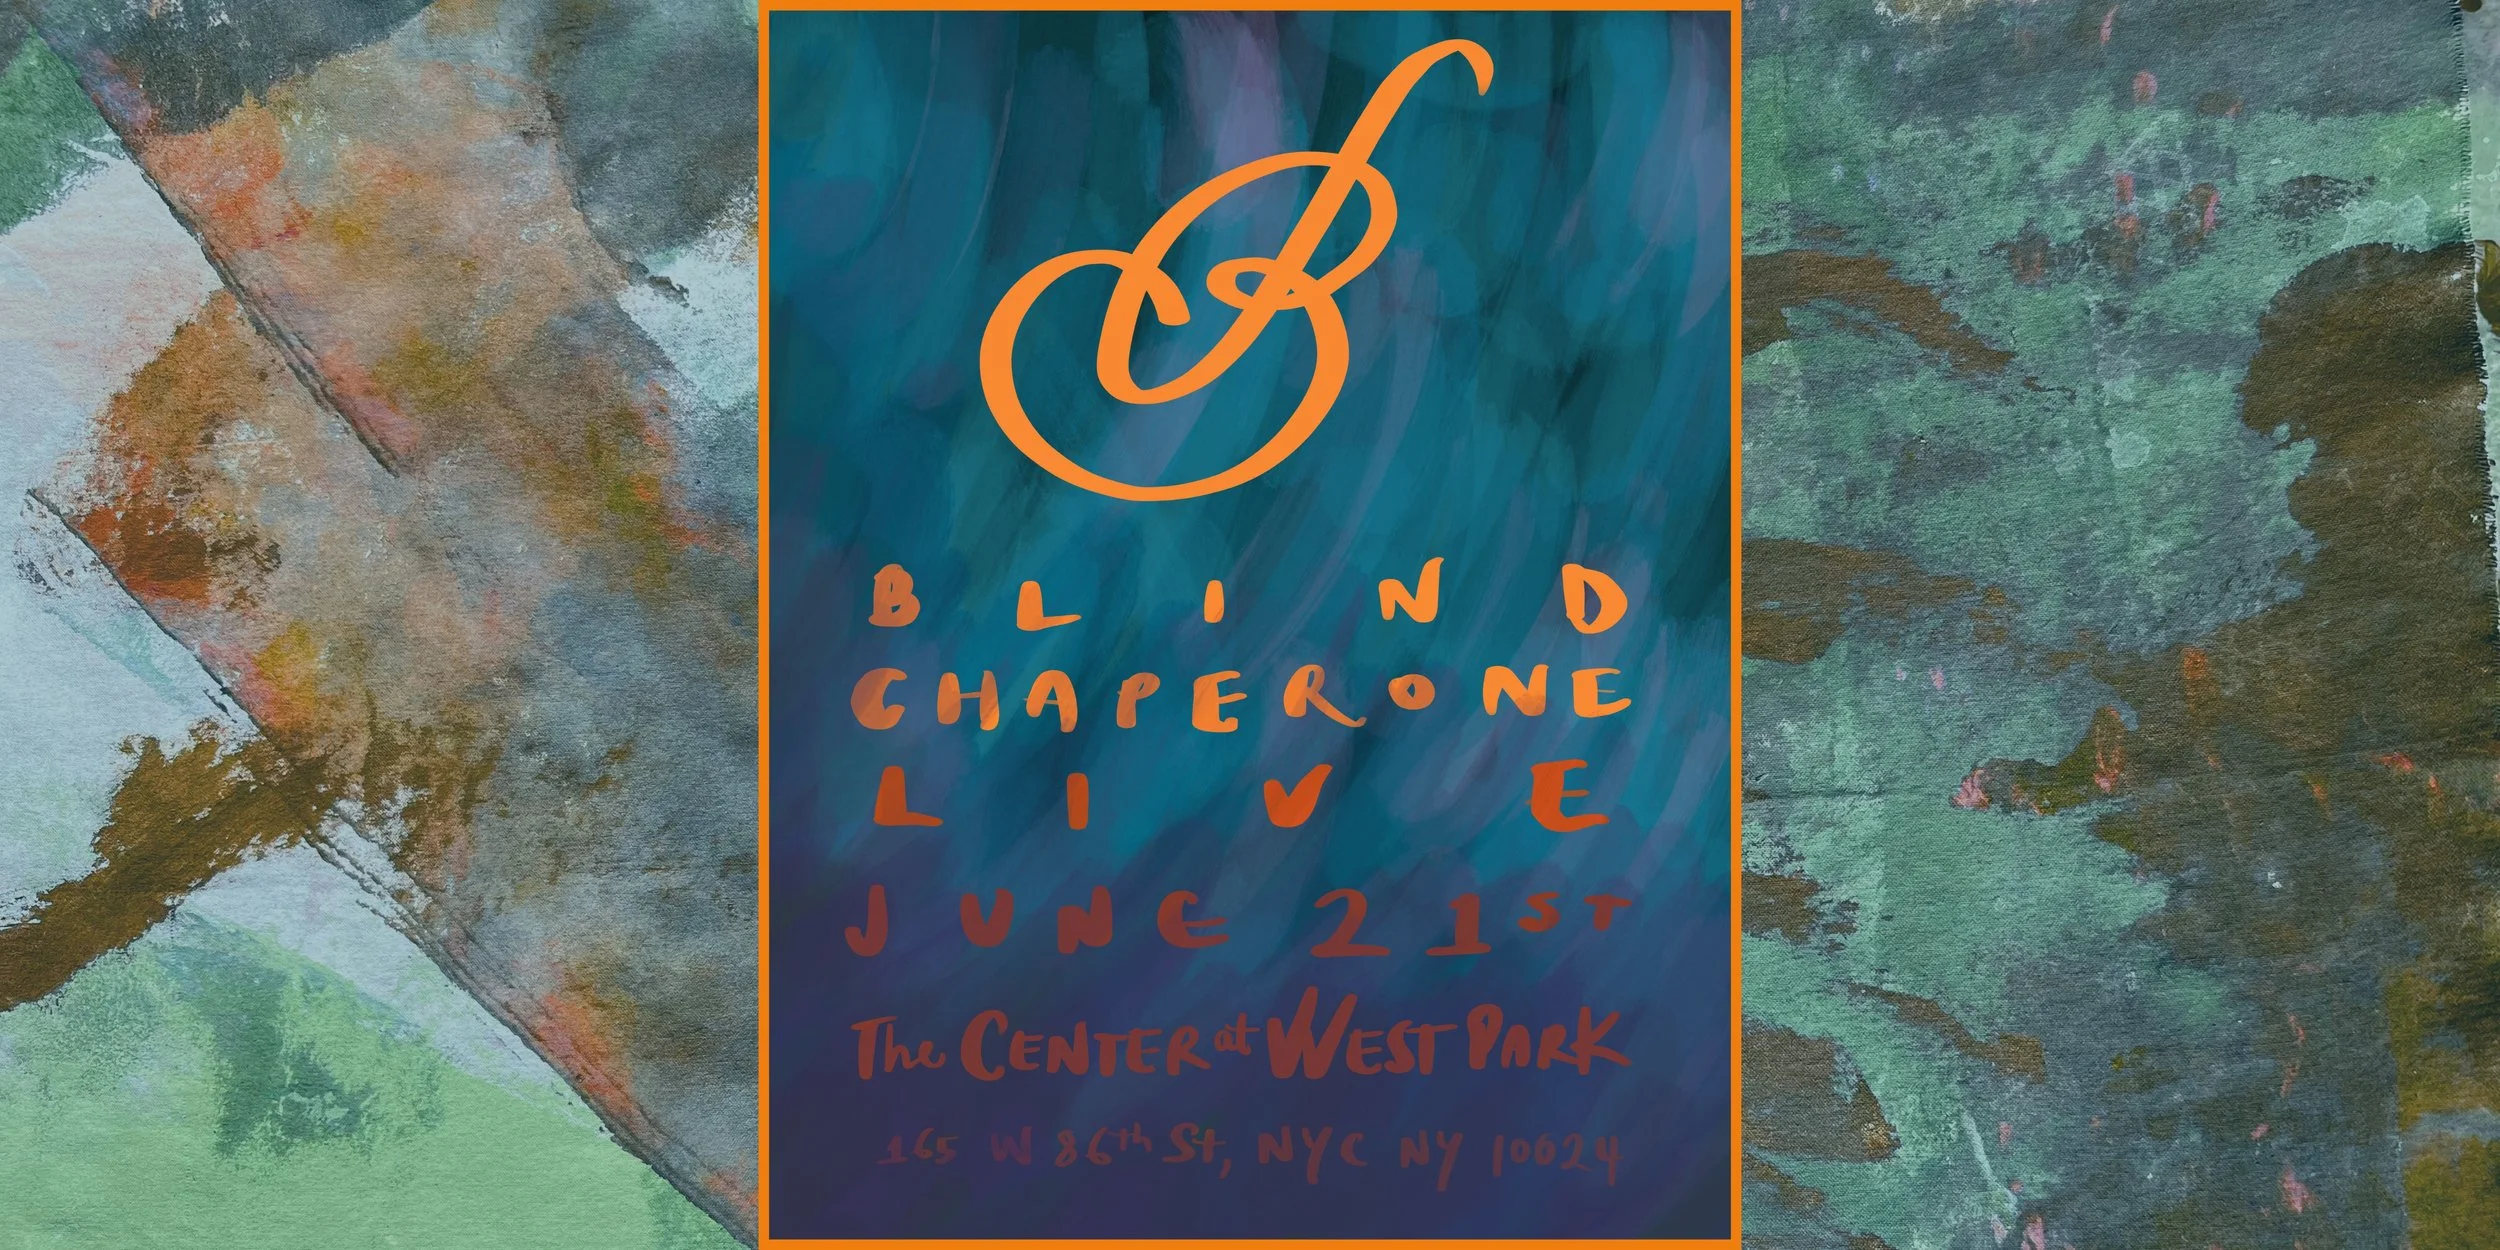 BLIND
CHAPERONE
LIVE
JUNE 21ST
The CENTER at WEST PARK
165 W 86th St, NYC NY 10024